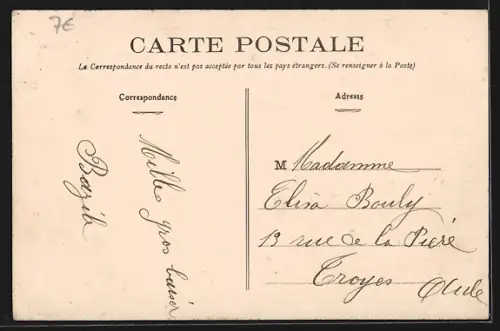 7€
CARTE POSTALE
La Correspondance du recto n'est pas acceptée par tous les pays étrangers. (Se renseigner à la Poste)
Correspondance
Mille gros baiser
Bazile
Adresse
M Madamme
Elisa Bouly
13 rue de la Pieré
Troyes
Aube